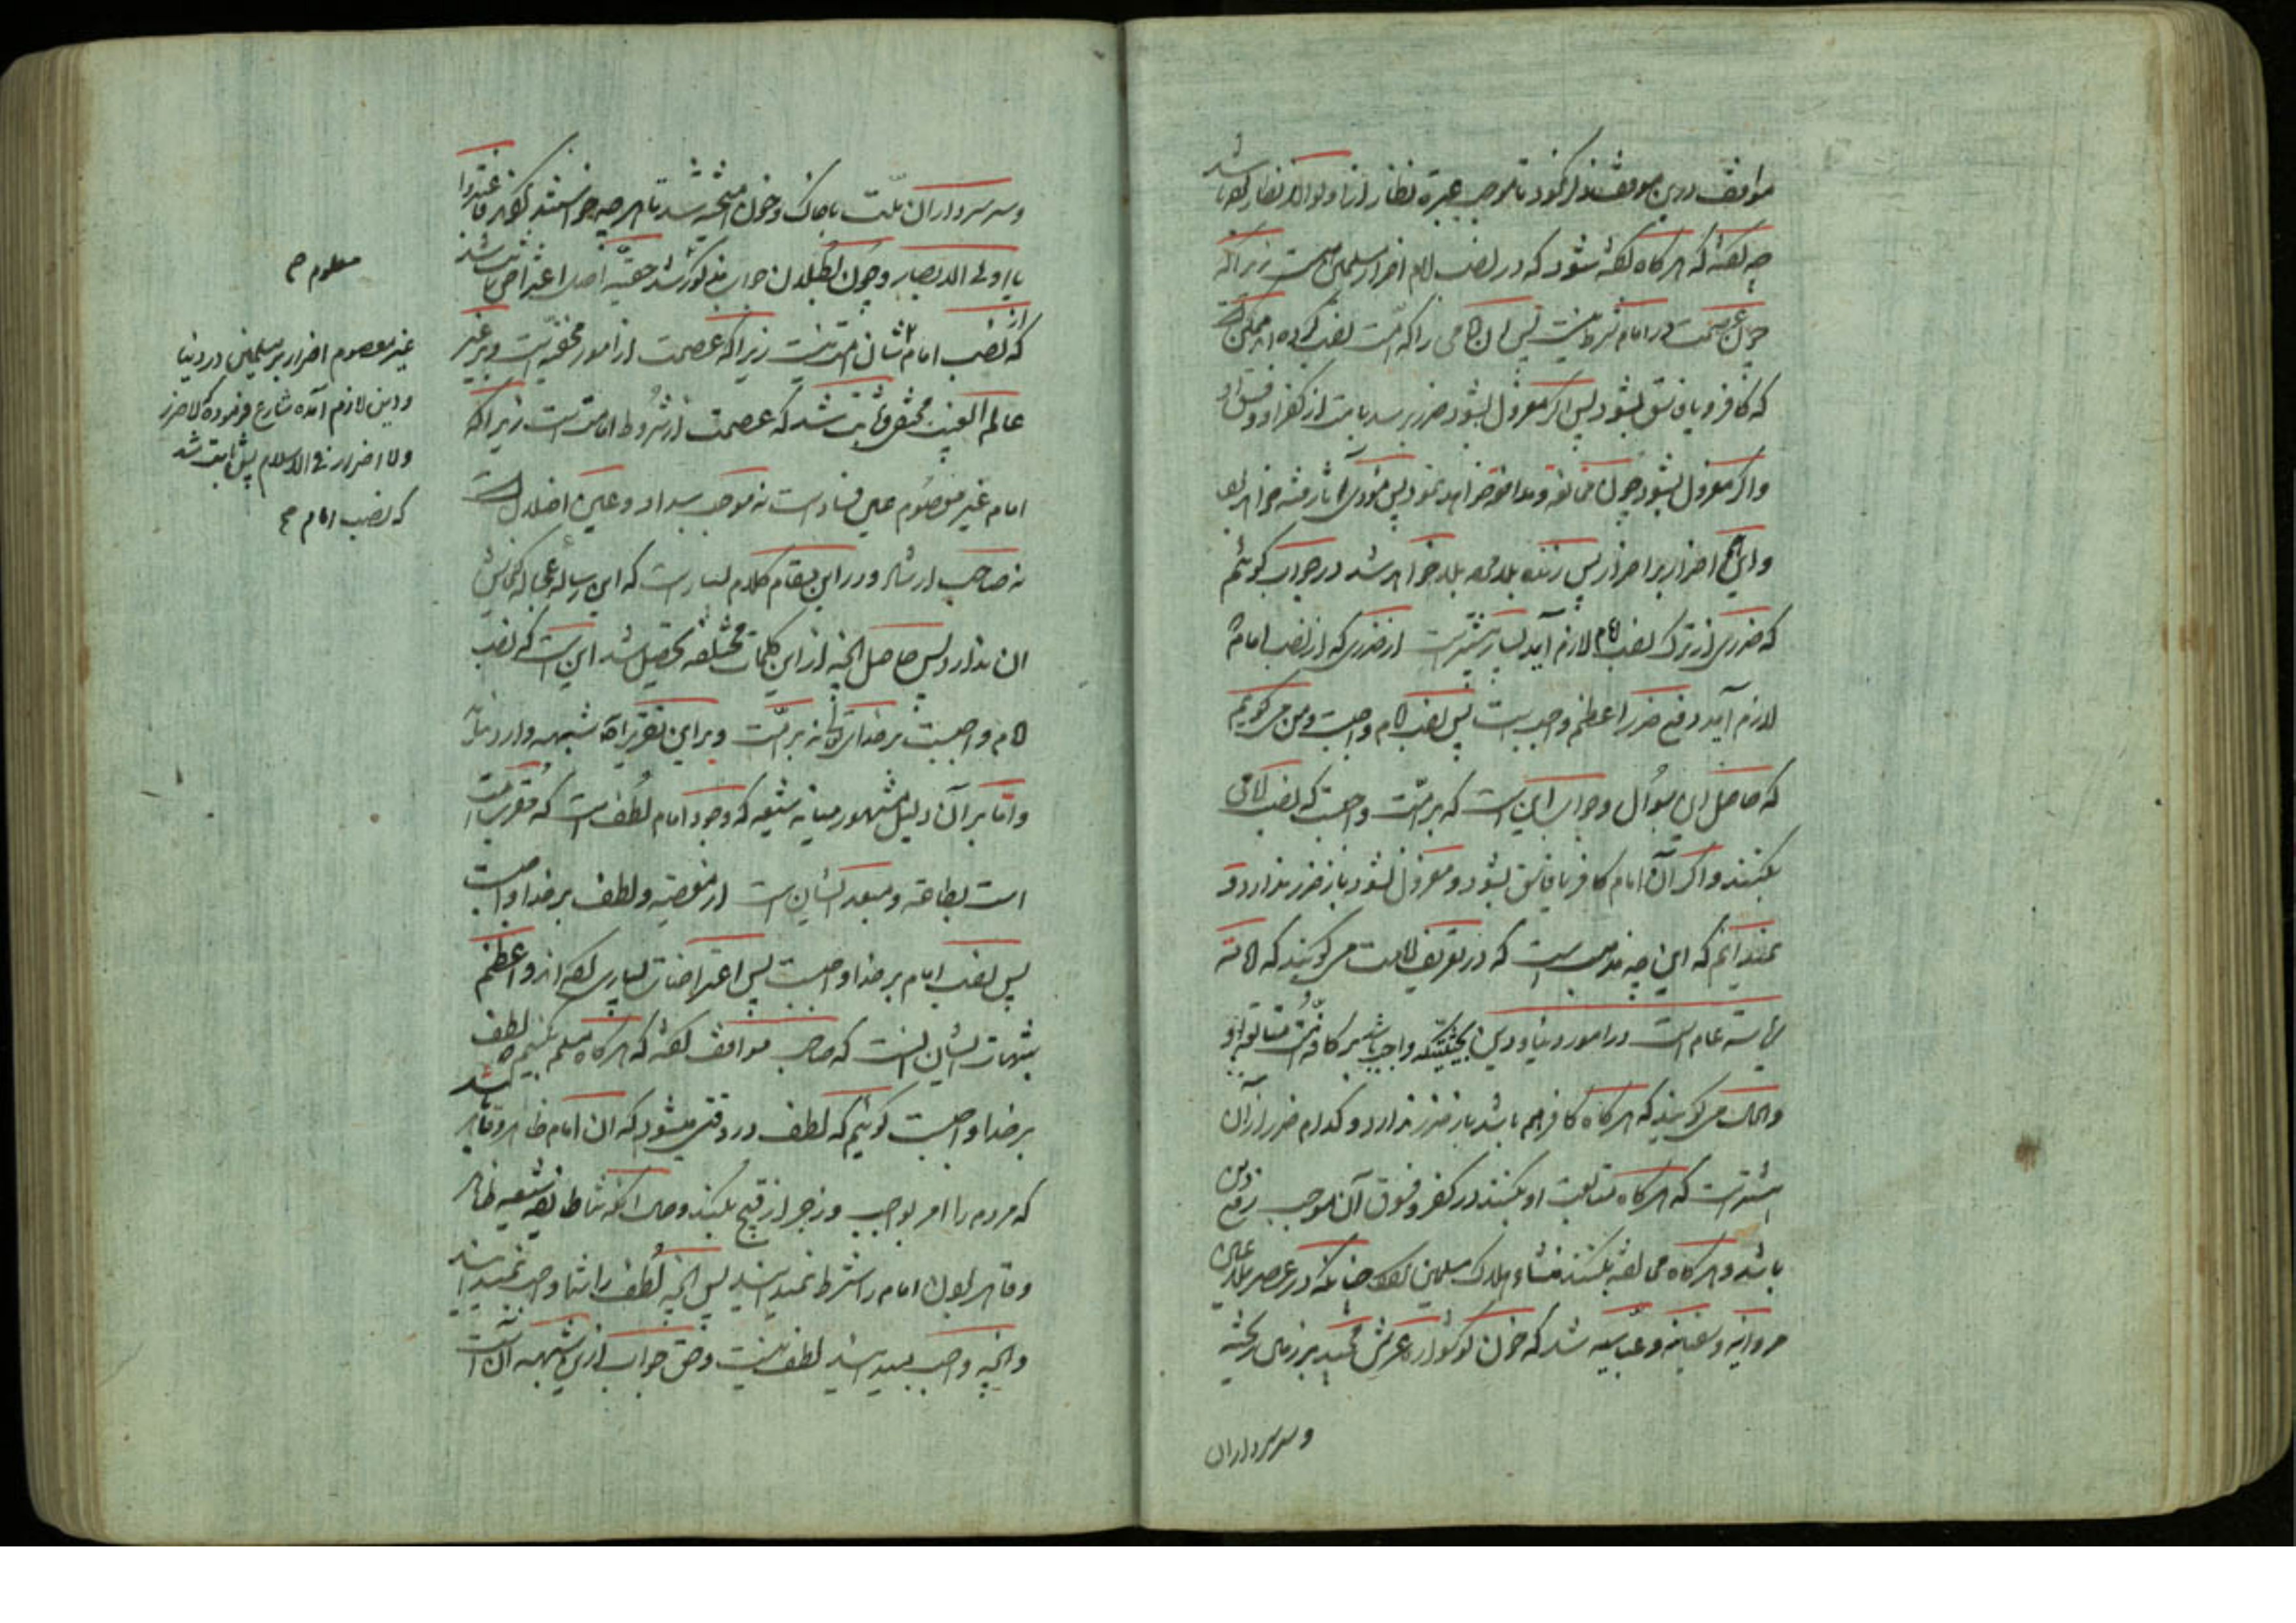 مواقف درین موقف ذکر نمود تا موجب عبرة نظار از اولوالانظار گردد باشد
چه گفته که هرگاه گفته شود که در نصب امام اضرار مسلمین است زیرا که
چون عصمت در امام شرط نیست پس آن امامی را که امت نصب کرده اند ممکن است
که کافر و یا فاسق بشود پس اگر معزول نشود ضرر برسد بامت از کفر او و فسق او
و اگر معزول بشود چون مخالفه و مدافعه خواهد نمود پس مؤدی باثاره فتنه خواهد بود
و این اضرار بر اضرار پس زننده بلکه خواهد شد در جواب گوئیم
که ضرری از ترک نصب امام لازم آید بسیار بیشتر است از ضرری که از نصب امام
لازم آید و دفع ضرر اعظم واجب است پس نصب امام واجبست و من می گویم
که حاصل این سؤال و جواب این است که بر امت واجبست که نصب امامی
بکنند و اگر آن امام کافر یا فاسق بشود و معزول نشود باز ضرر ندارد و
نمیدانم که این چه مذهب است که در تعریف امامت می گویند که امامة
ریاسة عامه است در امور دنیا و دین بحیثیتیکه واجب باشد بر کافه امت متابعة او
والحال می گویند که هرگاه کافر هم باشد باز ضرر ندارد و کدام ضرر از آن
بیشتر است که هرگاه متابعت او بکنند در کفر و فسوق آن موجب رفع دین
باشد و هرگاه مخالفة بکنند منشاء هلاک مسلمین گردد چنانکه در عصر
مروانیه و سفیانیه و عباسیه شد که خون گوشواره عرش مجید بر زمین ریخته
و سر سرداران
و سر سرداران ملت با خاک و خون آمیخته شد تا هر چه خواستند کردند فاعتبروا
یا اولی الابصار و چون بطلان جواب مذکور شد حقیة اصل اعتراض ثابت شد
که نصب امام از شان امت نیست زیرا که عصمت از امور مخفیه است و بر غیر
عالم الغیب مختفی ثابت شد که عصمت از شروط امامت است زیرا که
امام غیر معصوم عین فساد است نه موجب سداد و عین اضلال است
نه صاحب ارشاد و در این مقام کلام بسیار است که این رساله عجاله گنجایش
آن ندارد پس حاصل آنچه از این کلمات مختلفه تحصیل شد این است که نصب
امام واجبست بر خدای تعالی نه بر امت و بر این تقریر اصلا شبهه وارد نه
و اما بر آن دلیل مشهور میانه شیعه که وجود امام لطف است که مقرب امت
است بطاعة و مبعد ایشان است از معصیة و لطف بر خدا واجب است
پس نصب امام بر خدا واجبست پس اعتراضات بسیاری گفته اند و اعظم
شبهات ایشان آنست که صاحب مواقف گفته که هرگاه مسلم بکنیم که لطف
بر خدا واجبست گوئیم که لطف در وقتی میشود که آن امام ظاهر و قاهر باشد
که مردم را امر بواجب و زجر از قبیح بکند و حال آنکه شما طایفه شیعه ظاهر
و قاهر بودن امام را شرط نمیدانید پس آنچه لطف را شما واجب نمیدانید
و آنچه واجب میدانید لطف نیست و حق جواب ازین شبهه آن است
معلوم صح
غیر معصوم اضرار بر مسلمین در دنیا
و دین لازم آمده شارع فرموده که لا ضرر
و لا اضرار فی الاسلام پس ثابت شد
که نصب امام صح